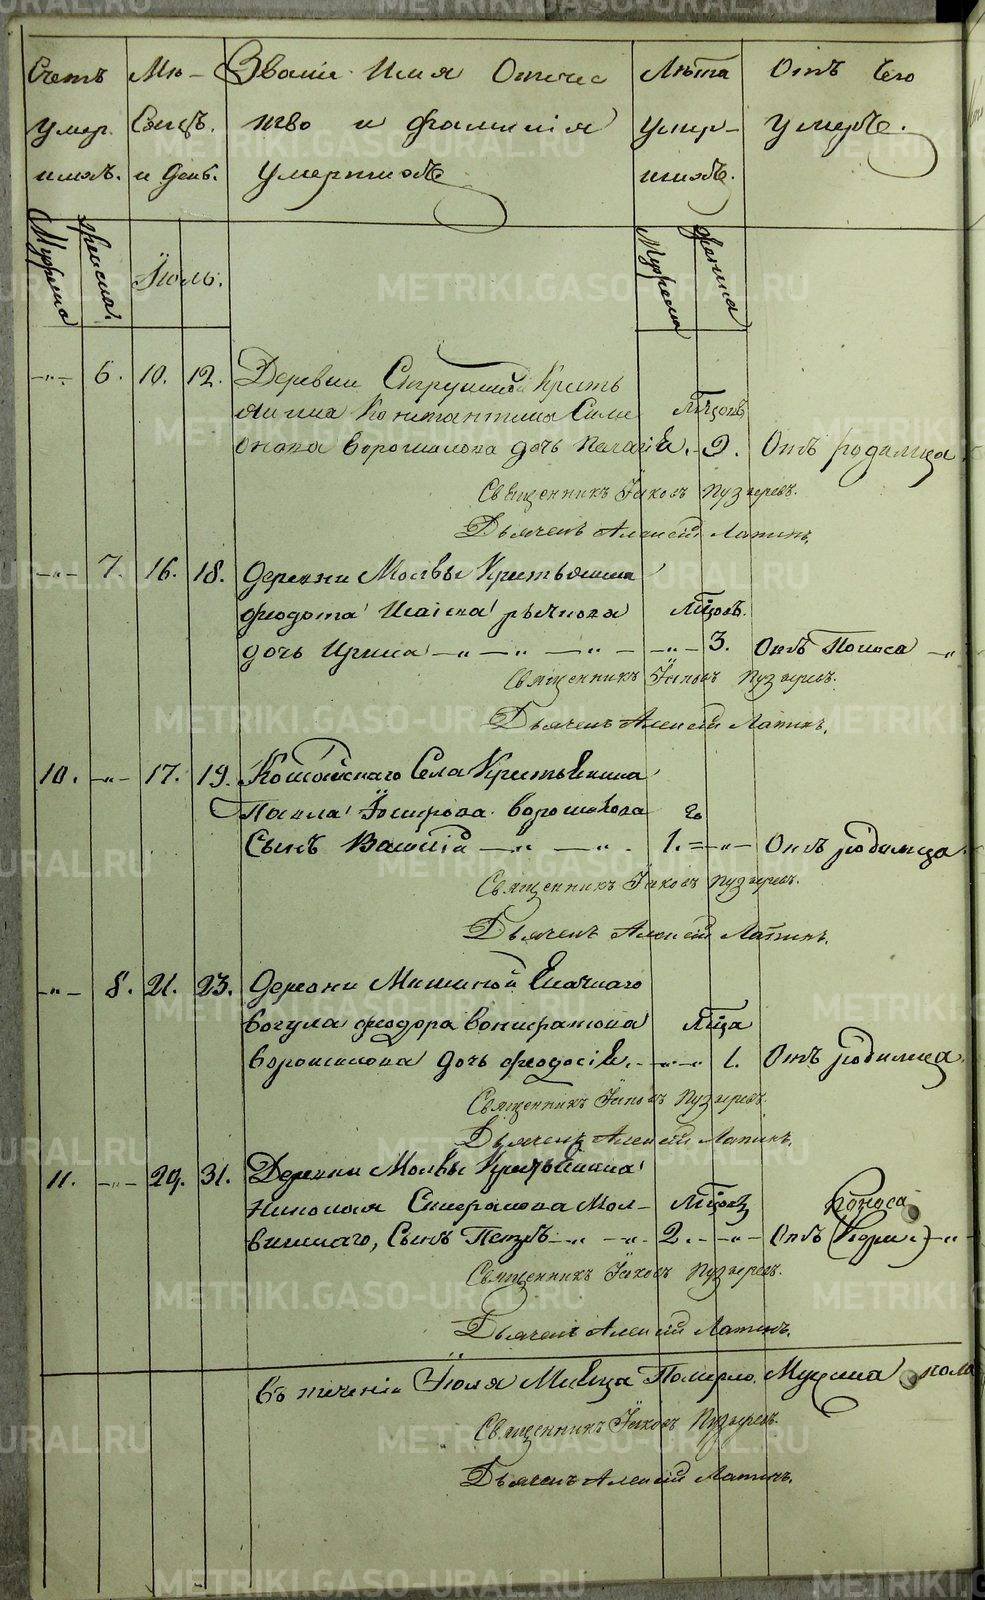 Счетъ Мѣ- Званіе Имя Отчес Лѣта Отъ чего
умер. сяцъ. тво и фамилія умер- умеръ.
шихъ. и день. умершихъ шихъ.
Мужеска женска Іюль. Мужеска женска
-„- 6. 10. 12. Деревни Крестья
янина Константина
Ворошилова дочь Пелагія. Мѣсяцовъ 9. Отъ родимца
Священникъ Іаковъ Пузыревъ.
Дьяченъ Алексій Лапинъ.
-„- 7. 16. 18. деревни Молвы Крестьянина
Феодота Исаіева
дочь Ирина -„- -„- -„- -„- 3. Отъ Поноса -„-
Священникъ Іаковъ Пузыревъ.
Дьяченъ Алексій Лапинъ.
10. -„- 17. 19. Села Крестьянина
Павла Ворошилова го
Сынъ Василій -„- -„- 1. -„- Отъ родимца
Священникъ Іаковъ Пузыревъ.
Дьяченъ Алексій Лапинъ.
-„- 8. 21. 23. Деревни Мишиной Ясачнаго
вогула Феодора Вонифатова
Ворошилова дочь Феодосія. -„- 1. Отъ родимца.
Священникъ Іаковъ Пузыревъ.
Дьяченъ Алексій Лапинъ.
11. -„- 29. 31. Деревни Молвы Крестьянина
Николая Мол- поноса
винскаго, Сынъ Петръ -„- -„- 2. -„- Отъ (Кори.) -„-
Священникъ Іаковъ Пузыревъ.
Дьяченъ Алексій Лапинъ.
въ теченіи Іюля Мѣсяца Померло Мужеска пола
Священникъ Іаковъ Пузыревъ.
Дьяченъ Алексій Лапинъ.
METRIKI.GASO-URAL.RU